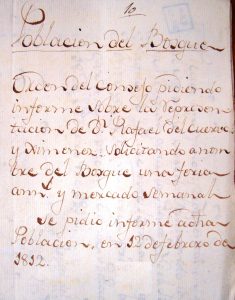 10
Poblacion del Bosque
Orden del Consejo pidiendo
informe sobre la represen
tacion de Dn Rafael del Cuervo
y Ximenez, solicitando a nom
bre del Bosque una feria
y mercado semanal
se pidio informe a dha
Poblacion, en 12 de febrero de
1812.